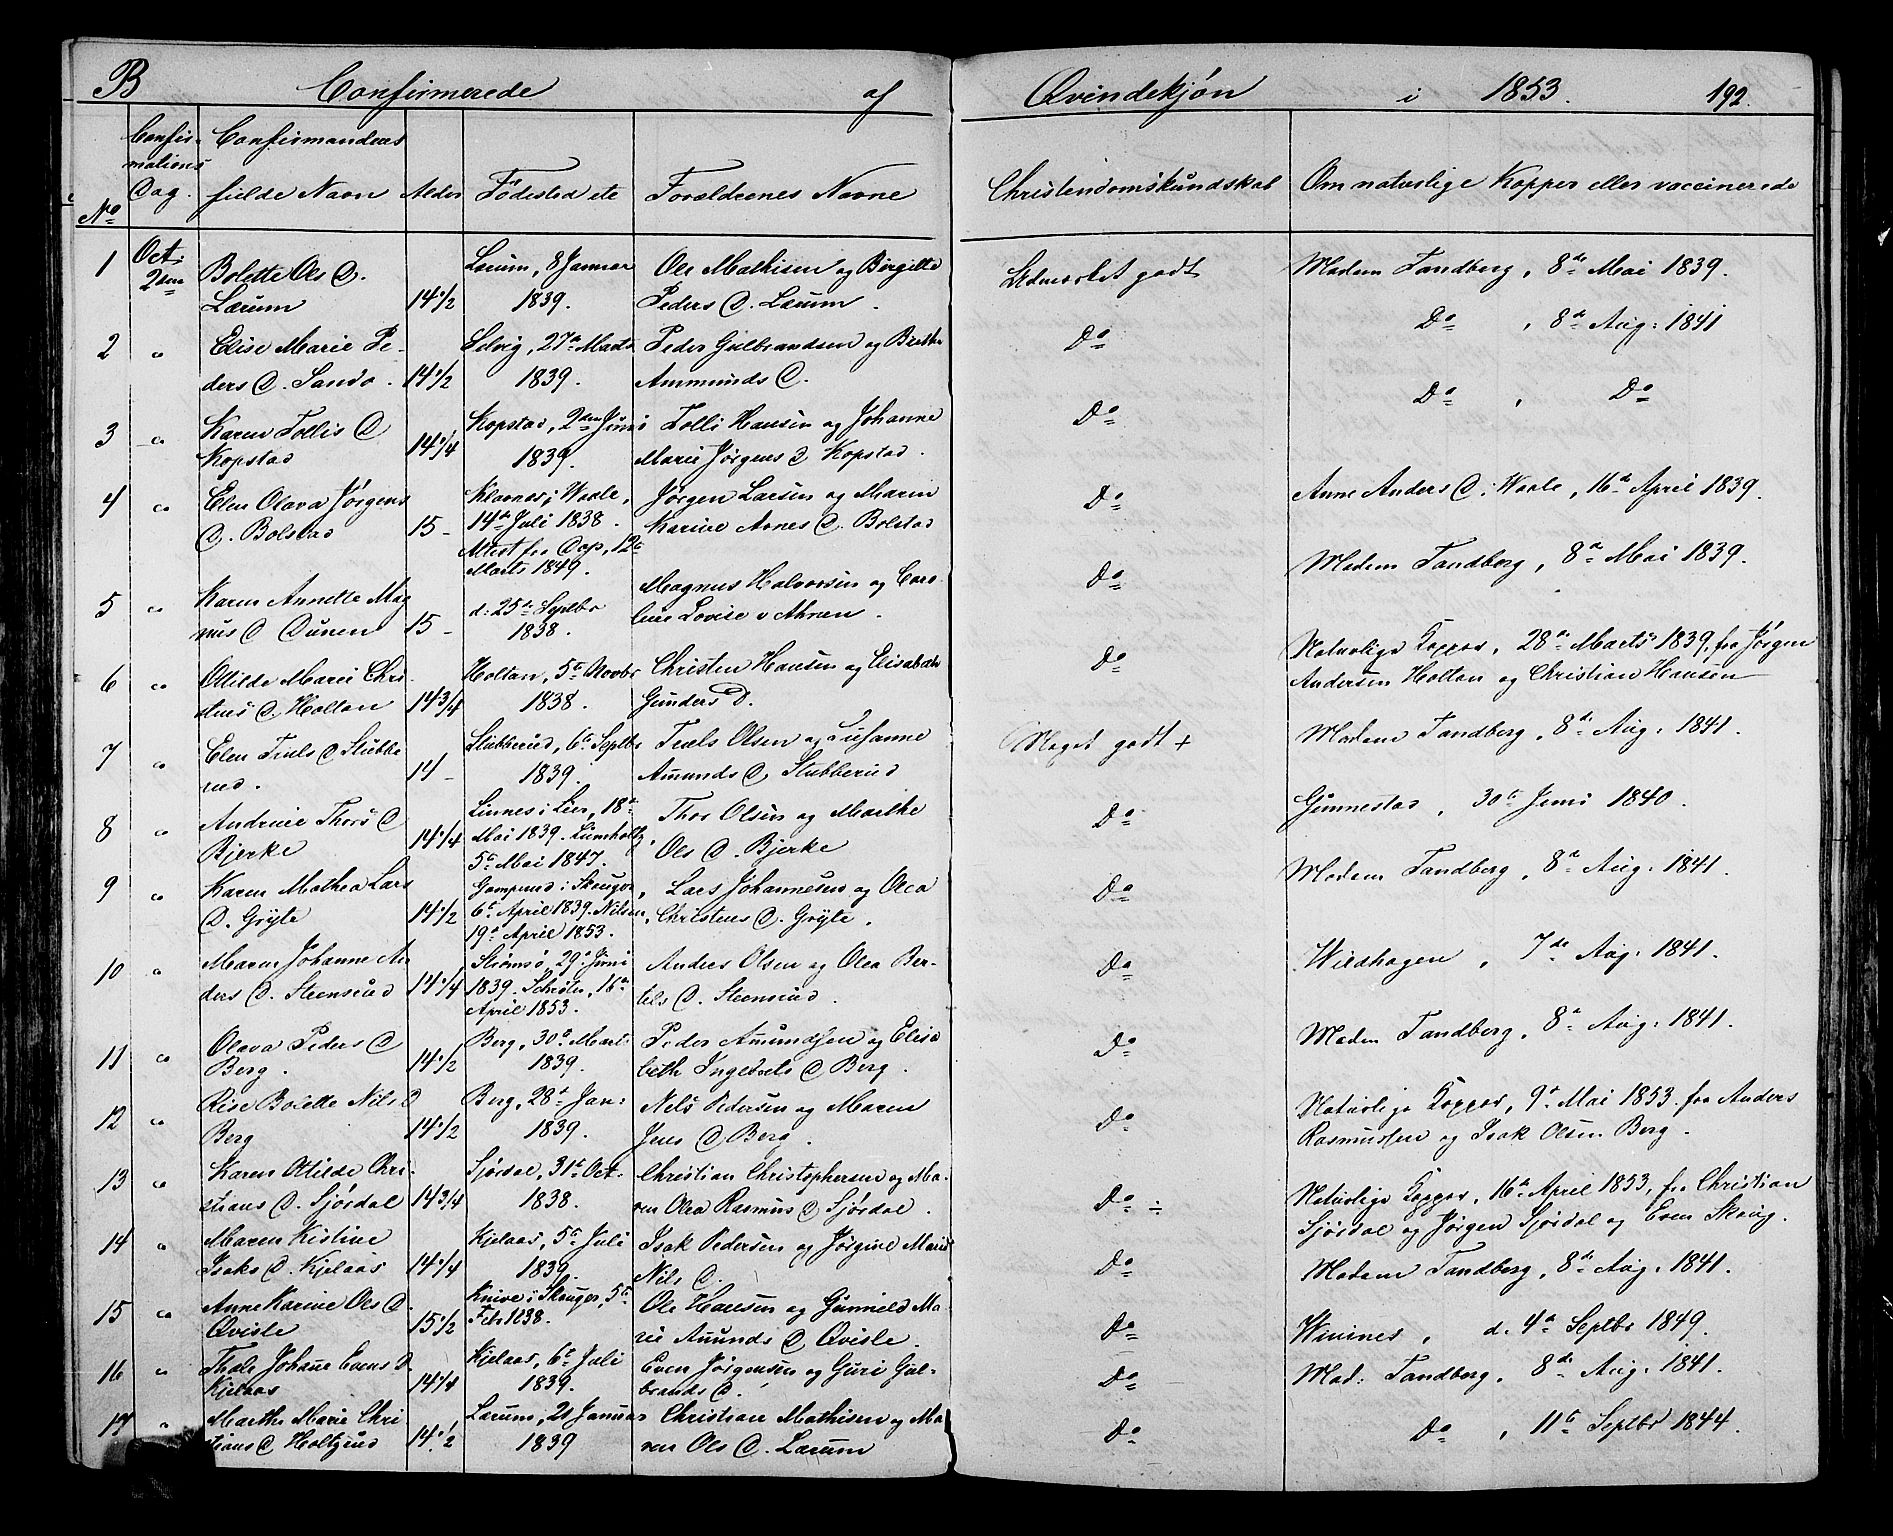 B Confirmerede af Qvindekjøn i 1853. 192.
No Confirmations Dag. Confirmandens fulde Navn Alder Födested etc Forældrenes Navne Christendomskundskab Om naturlige Kopper eller vaccinerede
1 Oct: 2den Bolette Ols D. Lærum 14 1/2 Lærum, 8 Januar 1839. Ole Mathisen og Birgitte Peders D. Lærum. Udmærket godt Madem Tandberg, 8de Mai 1839.
2 " Elise Marie Peders D. Sando. 14 1/2 Selvig, 27de Marts 1839. Peder Gulbrandsen og Berthe Ammunds D. Do Do, 8de Aug: 1841
3 " Karen Tollis D Kopstad 14 1/4 Kopstad, 2den Juni 1839. Tolli Hansen og Johanne Marie Jørgens D Kopstad. Do Do, Do
4 " Elen Olava Jørgens D. Bolstad 15- i Waale, 14de Juli 1838. Attest fra Dap, 12te Marts 1849. Jørgen Larsen og Maren Karine Arnes D. Bolstad Do Anne Anders D. i Waale, 16de April 1839.
5 " Karen Annette Magnus D Dunen 15- d: 25de Septbr 1838. Magnus Halvorsen og Caroline Lovise v Ahren. Do Madem Tandberg, 8de Mai 1839.
6 " Ottilde Marie Christens D. Holtan 14 3/4 Holtan, 5te Novbr 1838. Christen Hansen og Elisabeth Gunders D. Do Naturlige Kopper, 28de Marts 1839, fra Jørgen Andersen Holtan og Christian Hansen
7 " Elen Truls D Stubberud. 14- Stubberud, 6te Septbr 1839. Truls Olsen og Susanne Amunds D. Stubberud Meget godt + Madem Tandberg, 8de Aug: 1841.
8 " Andrine Thors D Bjerke 14 1/4 Linnes i Lier, 18de Mai 1839. Lumholtz, 5te Mai 1847. Thor Olsen og Marthe Ols D. Bjerke Do Gunnestad, 30te Juni 1840.
9 " Karen Mathea Lars D. Gryte 14 1/2 i Skouger, 6te April 1839. Nilsen, 19de April 1853. Lars Johannesen og Olea Christens D. Gryte. Do Madem Tandberg, 8de Aug: 1841.
10 " Maren Johanne Anders D. Steensrud 14 1/4 Strømsø, 29de Juni 1839. Schrøter, 16de April 1853. Anders Olsen og Olea Bertels D. Steensrud. Do Wirdhagen, 7de Aug: 1841.
11 " Olava Peders D Berg. 14 1/2 Berg, 30te Mart: 1839. Peder Amundsen og Elisabeth Ingebrets D Berg. Do Madem Tandberg, 8de Aug: 1841.
12 " Rise Bolette Nils D Berg 14 1/2 Berg, 28de Jan: 1839. Nels Pedersen og Maren Jens D Berg. Do Naturlige Kopper, 9de Mai 1853. fra Anders Rasmussen og Isak Olsen Berg.
13 " Karen Otilde Christians D. Sjørdal 14 3/4 Sjørdal, 31te Oct: 1838. Christian Christophersen og Maren Olea Rasmus D Sjørdal. Do ÷ Naturlige Kopper, 16de April 1853, fra Christian Sjørdal og Jørgen Sjørdal og Even Skoug.
14 " Maren Kistine Isaks D. Kjelaas 14 1/4 Kjelaas, 5te Juli 1839. Isak Pedersen og Jørgine Marie Nils D. Do Madem Tandberg, 8de Aug: 1841.
15 " Anne Karine Ols D. Qvisle 15 1/2 Knive i Skouger, 5te Feb: 1838. Ole Hansen og Gunnild Marie Amunds D Qvisle. Do d. 4de Septbr 1849.
16 " Thale Johane Evens D Kjelaas 14 1/4 Kjelaas, 6te Juli 1839. Even Jørgensen og Guri Gulbrands D. Do Mad: Tandberg, 8de Aug: 1841.
17 " Marthe Marie Christians D Holtgrud 14 1/2 Lærum, 21 Januar 1839 Christian Mathisen og Maren Ols D. Lærum Do Do, 11te Septbr 1844.